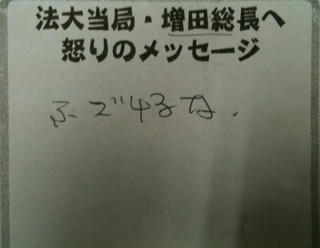 法大当局・増田総長へ
怒りのメッセージ
ふざけるな.